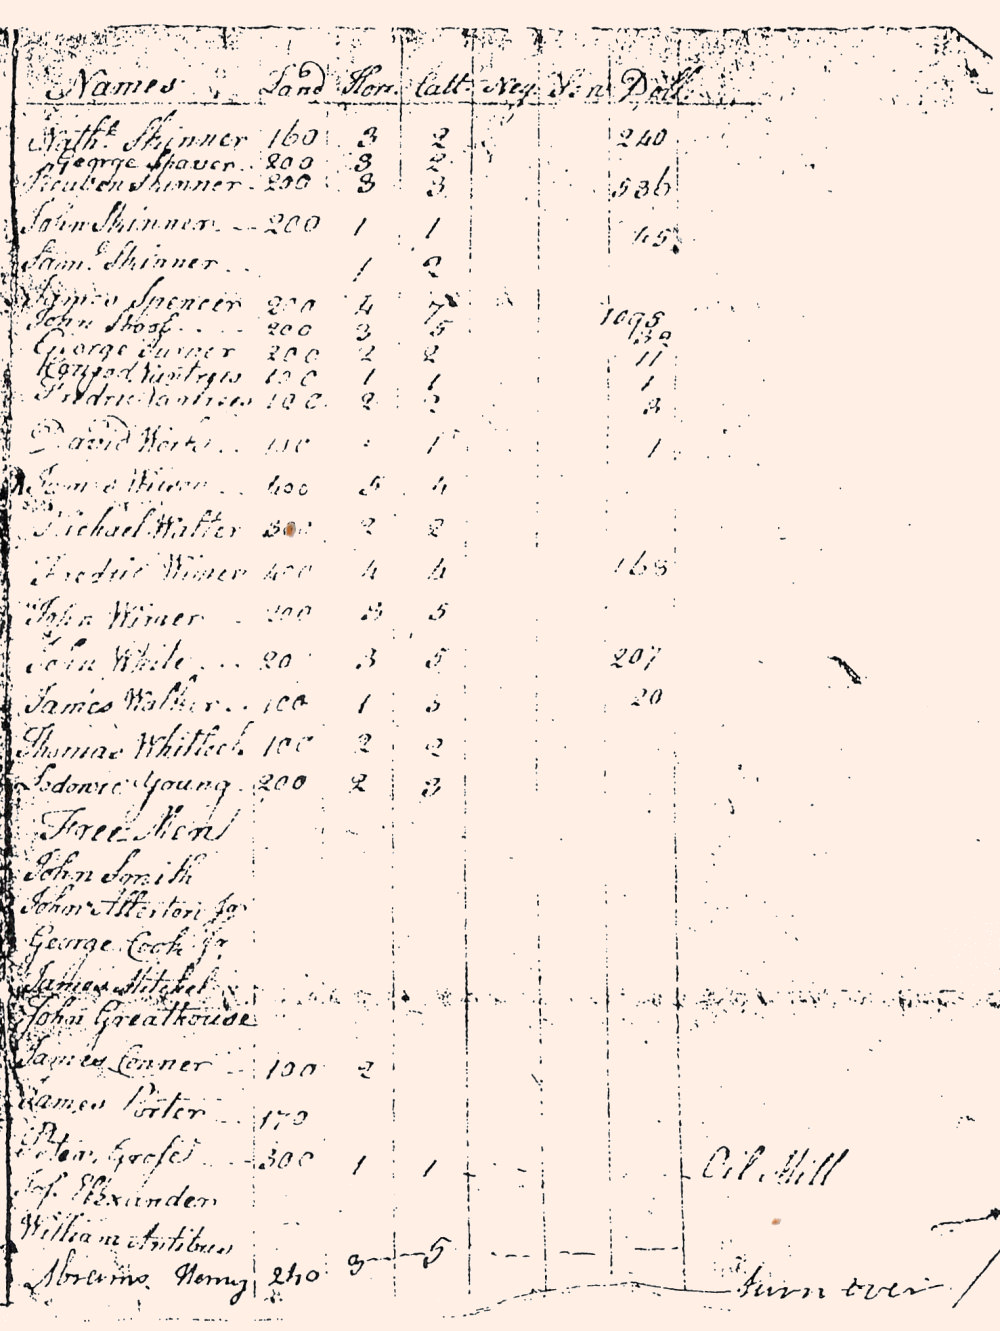 Names Land Hors. Catt. Neg. Doll.
Nath.l Skinner 160 3 2 240
George Shaver 200 3 2
Reuben Skinner 200 3 3 536
John Skinner 200 1 1 45
Sam.l Skinner 1 2
James Spencer 200 4 7 1095
John 200 3 5 32
George Turner 200 2 2 11
1 1 1
Fredric 100 2 2 3
David 1 1
James 400 5 4
Michael Walter 300 2 2
Fredric Wimer 400 4 4 168
John Wimer 200 5
John White 20 3 5 207
James Walker 100 1 3 20
Thomas Whitlock 100 2 2
Lodowic Young 200 2 3
Free Men
John Smith
John Atterton Jr
George Cook Jr
James Mitchel
John Greathouse
James Conner 100 2
James Porter 170
Peter 300 1 1 Oil Mill
Jos. Elexander
William Antibus
Abrams Henry 240 3 5
turn over